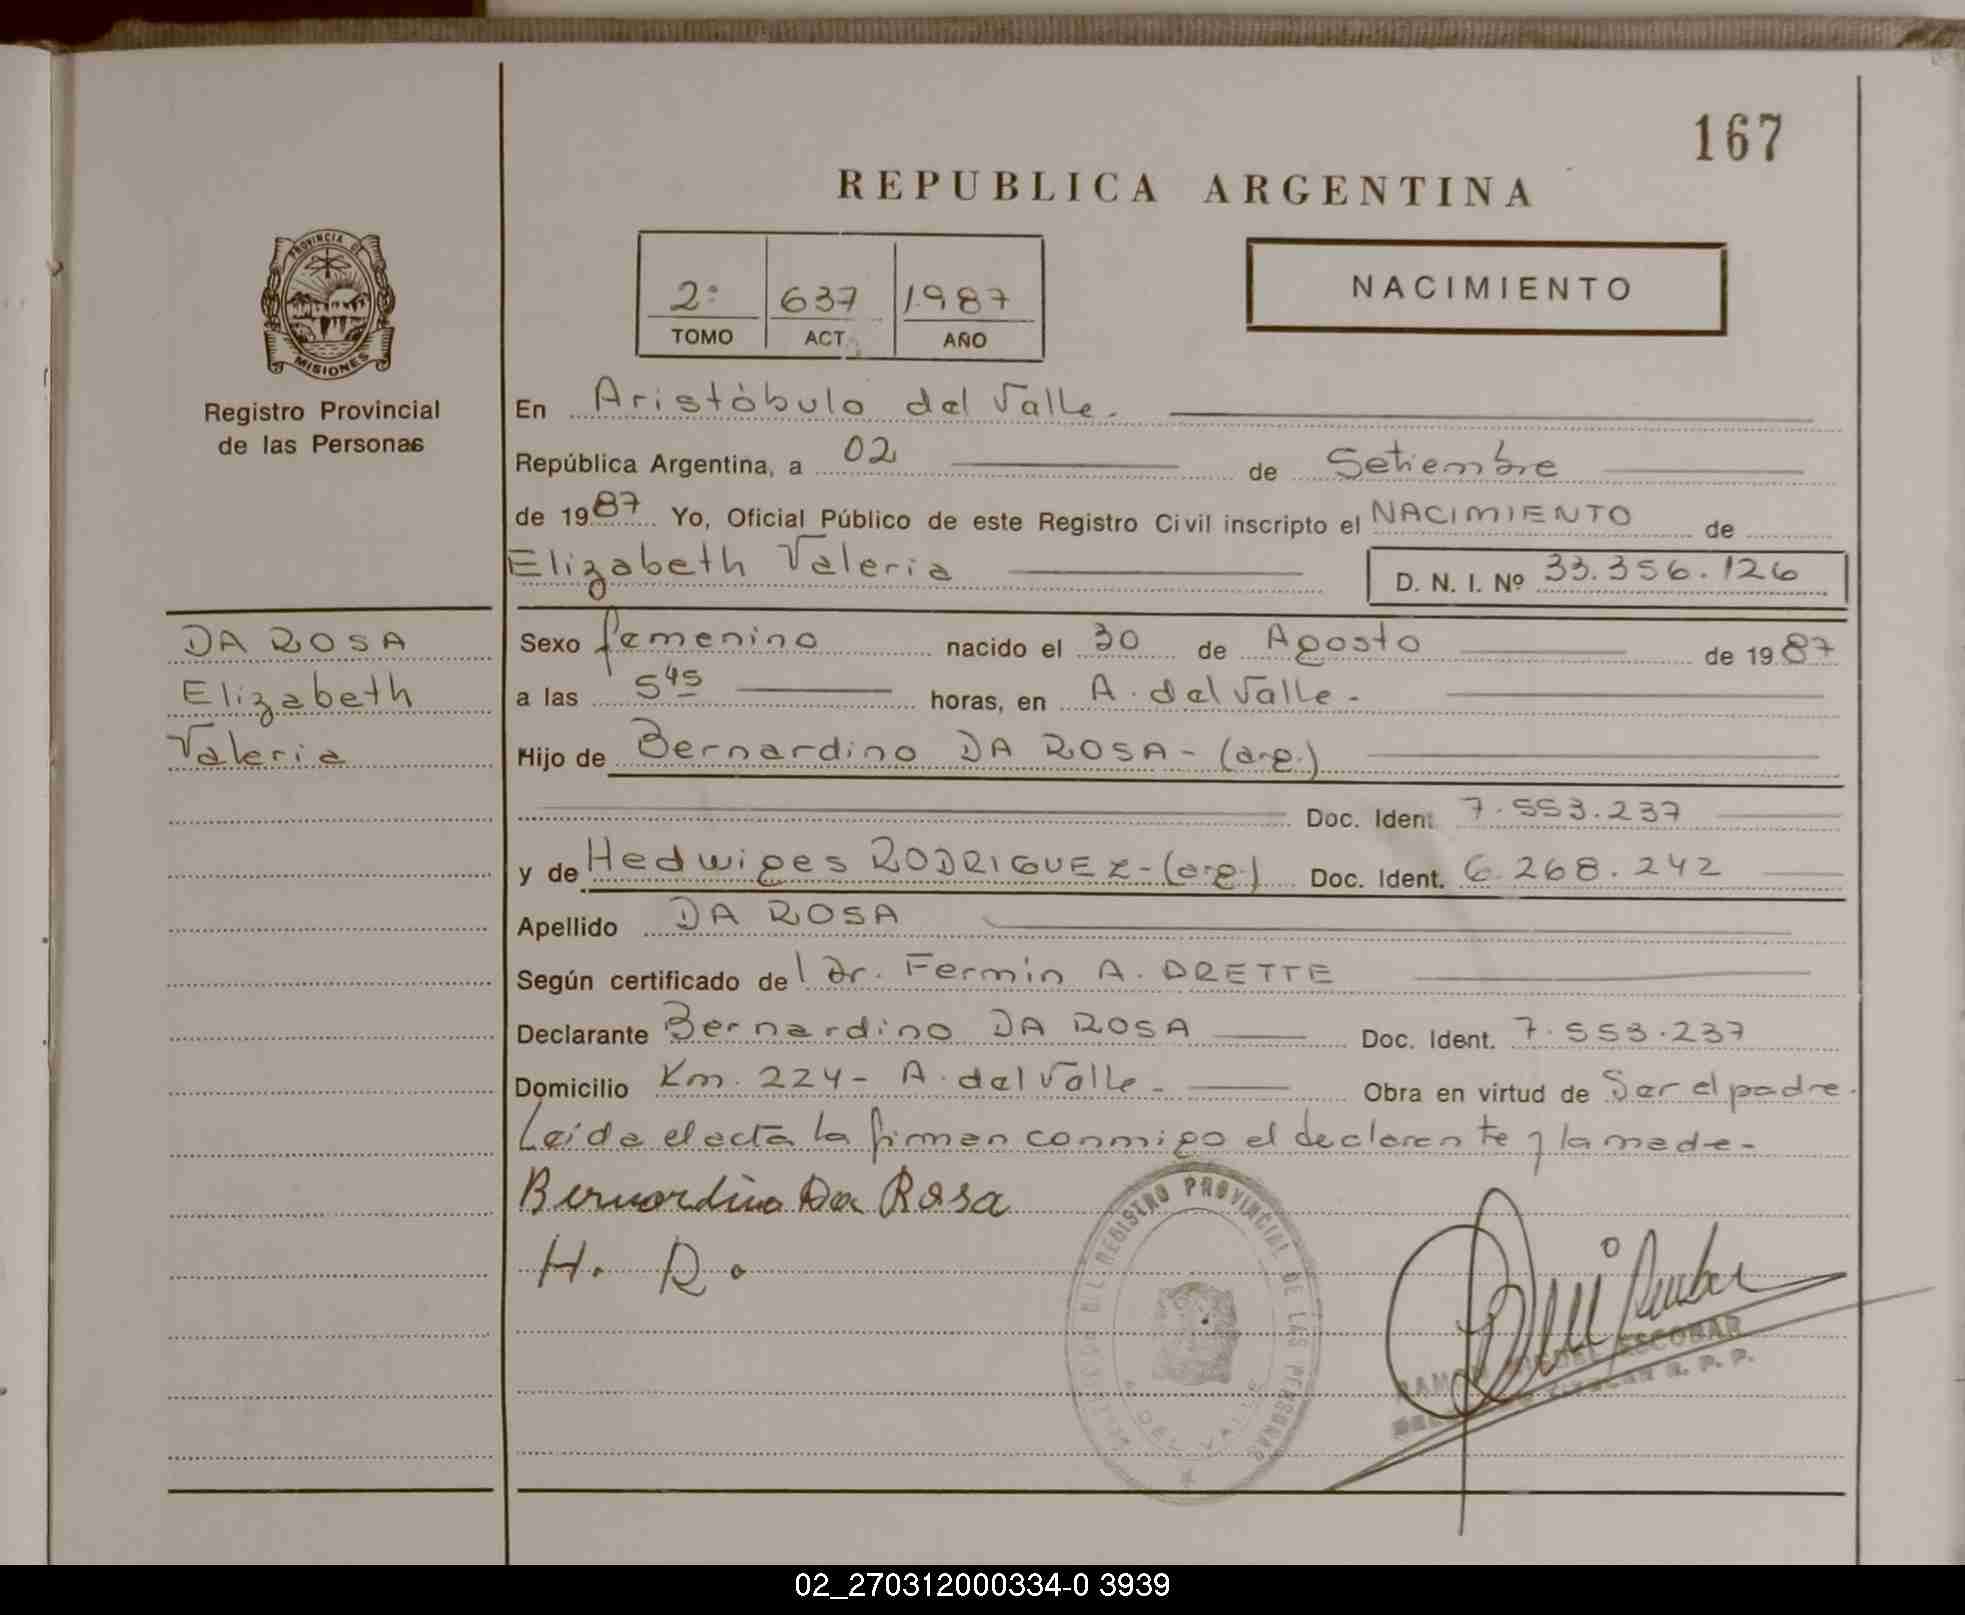 167
REPUBLICA ARGENTINA
PROVINCIA DE
MISIONES
Registro Provincial
de las Personas
2º 637 1987
TOMO ACT. AÑO
NACIMIENTO
En Aristóbulo del Valle.
República Argentina, a 02 de Setiembre
de 1987 Yo, Oficial Público de este Registro Civil inscripto el NACIMIENTO de
Elizabeth Valeria D. N. I. Nº 33.356.126
DA ROSA
Elizabeth
Valeria
Sexo femenino nacido el 30 de Agosto de 1987
a las 5 45 horas, en A. del Valle.
Hijo de Bernardino DA ROSA - (arg.)
Doc. Ident. 7.553.237
y de Hedwiges RODRIGUEZ - (arg.) Doc. Ident. 6.268.242
Apellido DA ROSA
Según certificado del Dr. Fermin A. DRETTE
Declarante Bernardino DA ROSA Doc. Ident. 7.553.237
Domicilio Km. 224 - A. del Valle - Obra en virtud de Ser el padre.
Leida el acta la firman conmigo el declarante y la madre -
Bernardino Da Rosa
H. R.
REGISTRO PROVINCIAL DE LAS PERSONAS
A. DEL VALLE
RAMON MIGUEL ESCOBAR
TITULAR R. P. P.
02_270312000334-0 3939